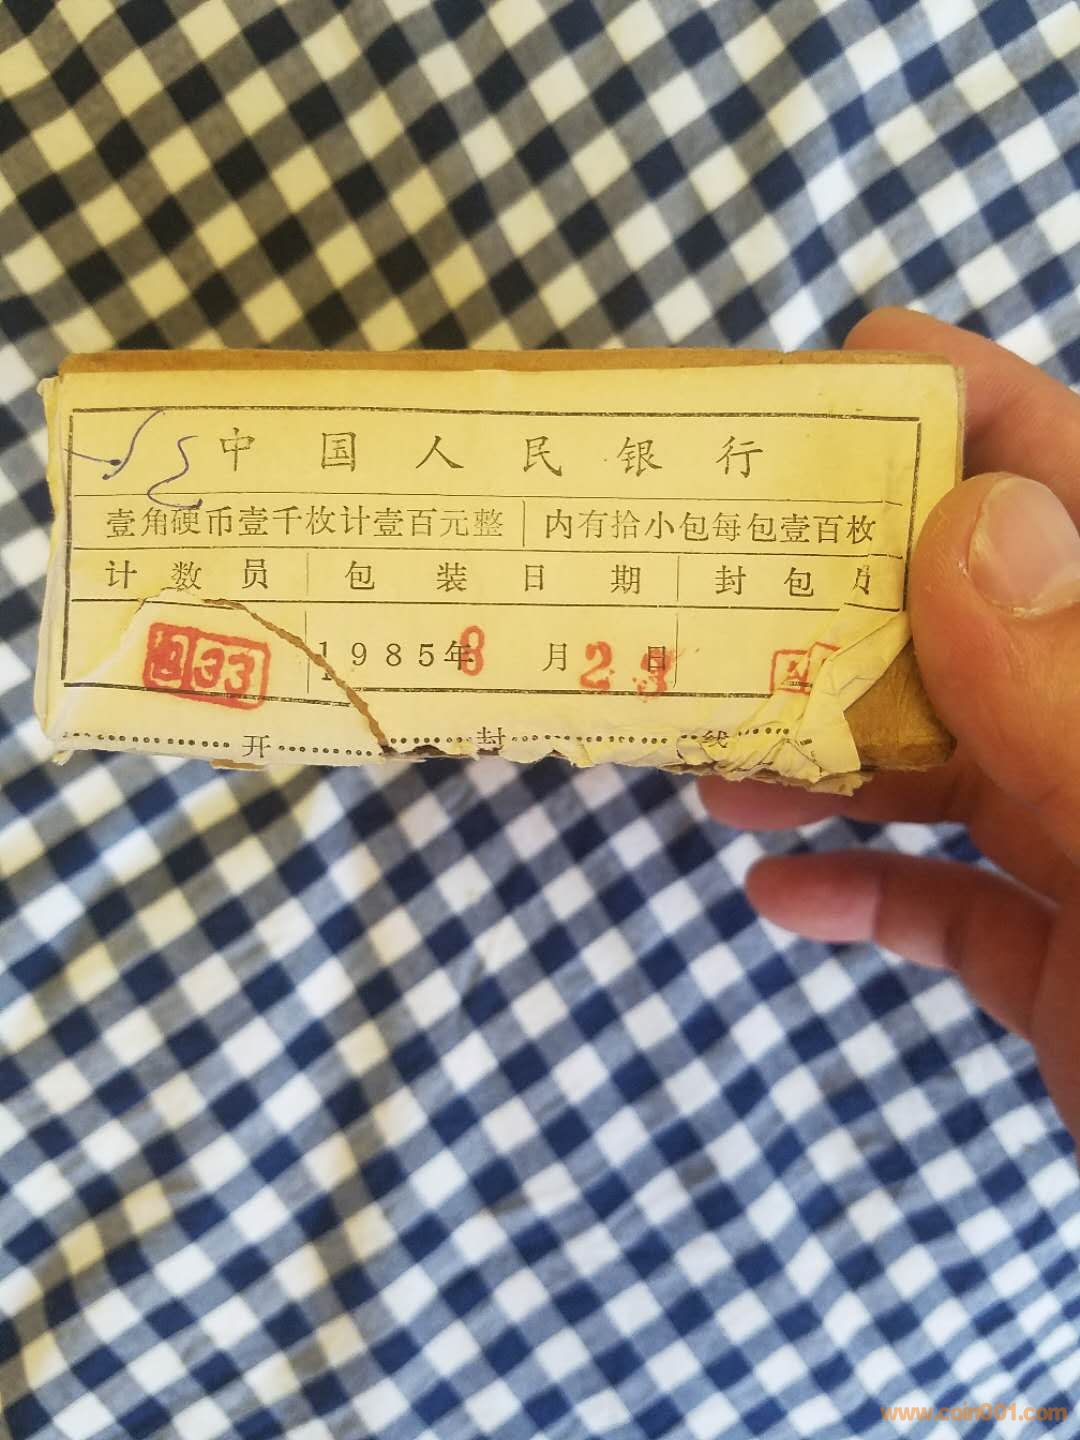 中国人民银行
壹角硬币壹千枚计壹百元整 内有拾小包每包壹百枚
计数员 包装日期 封包
33 1985年8月23日
开封线
www.coin001.com